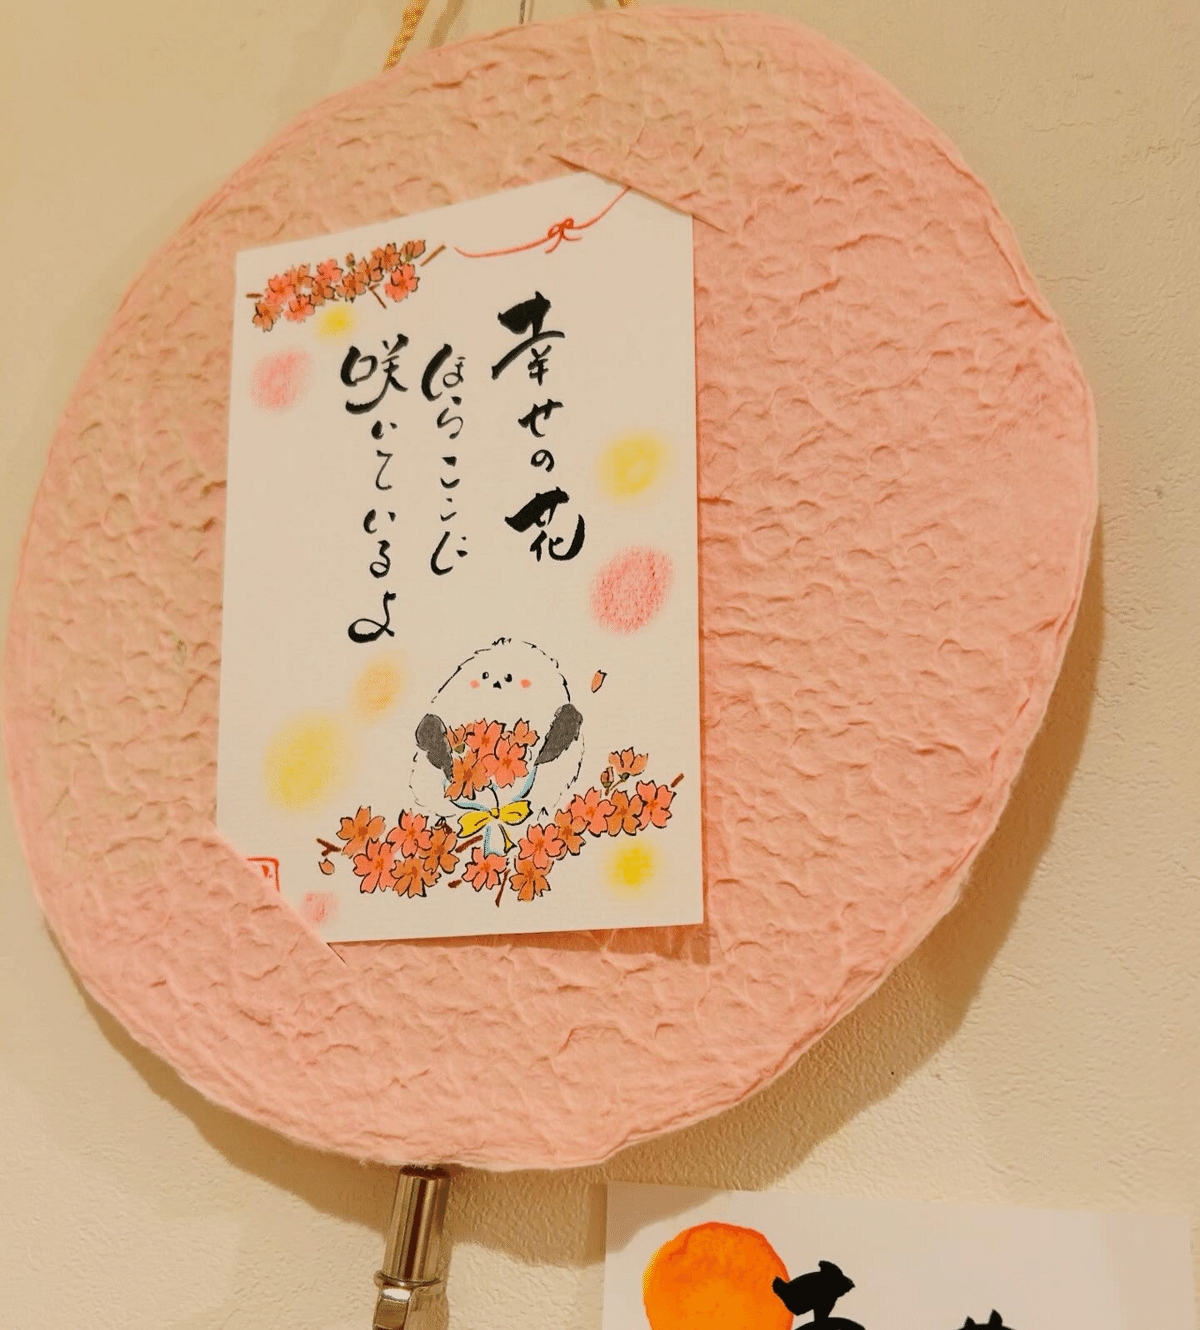 幸せの花
ほらここに
咲いているよ